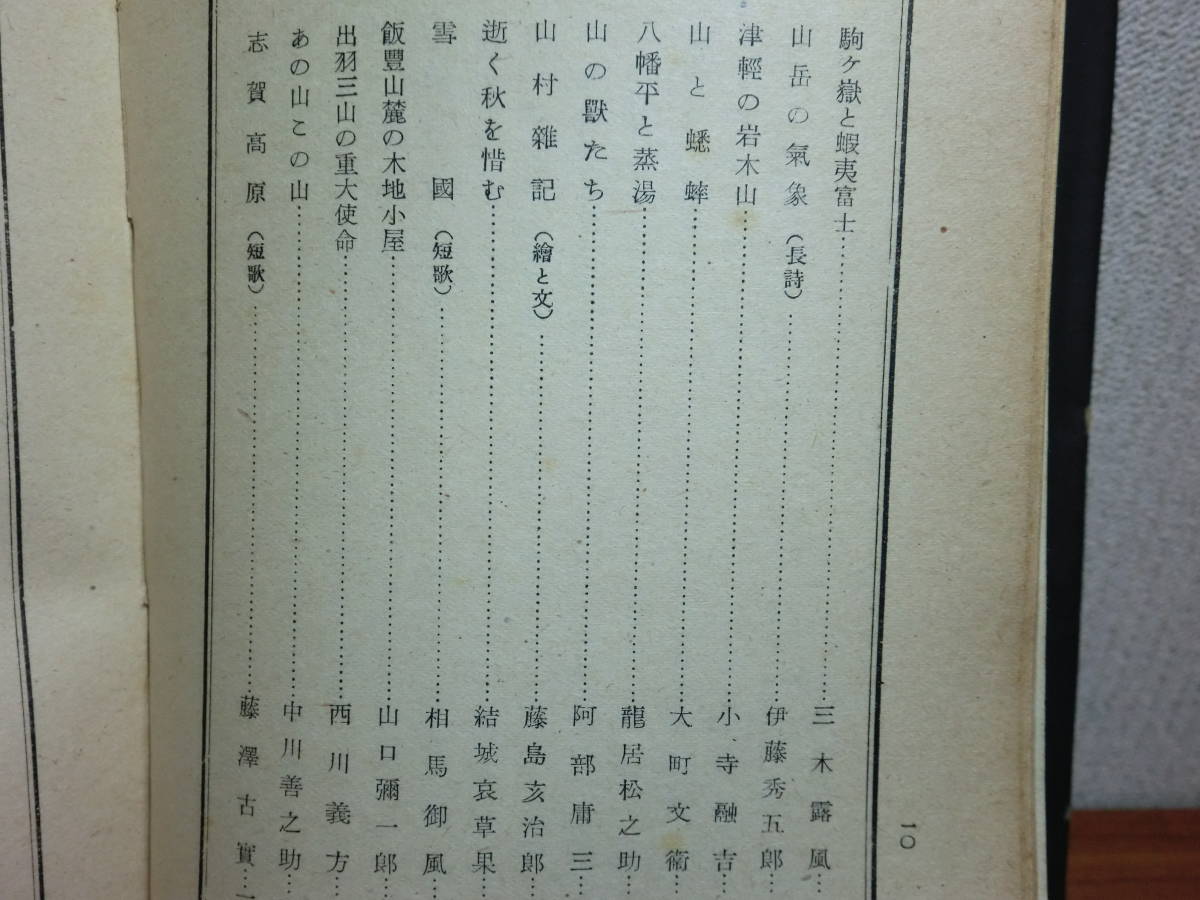 駒ヶ嶽と蝦夷富士……三木露風…
山岳の氣象（長詩）……伊藤秀五郎…
津輕の岩木山……小寺融吉…
山と蟋蟀……大町文衞…
八幡平と蒸湯……龍居松之助…
山の獸たち……阿部庸三…
山村雜記（繪と文）……藤島亥治郎…
逝く秋を惜む……結城哀草果…
雪國（短歌）……相馬御風…
飯豐山麓の木地小屋……山口彌一郎…
出羽三山の重大使命……西川義方…
あの山この山……中川善之助…
志賀高原（短歌）……藤澤古實…
一〇